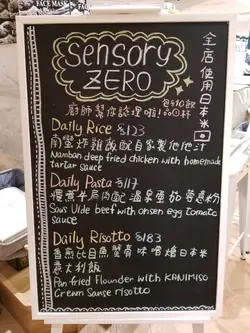 FACE MASK
Sensory
ZERO
全店使用日本米
Daily Rice $123
南蠻炸雞飯配自家製他他汁
Namban deep fried chicken with homemade
tartar sauce
Daily Pasta $117
慢煮牛肩肉配溫泉蛋茄蓉意粉
Sous Vide beef with onsen egg tomato
sauce
Daily Risotto $183
香煎比目魚蟹膏味噌燴日本米
意大利飯
Pan fried Flounder with KANIMISO
Cream Sauce risotto